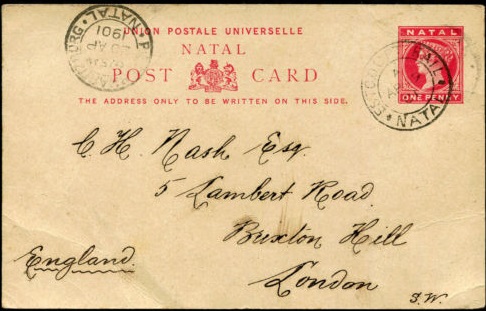 UNION POSTALE UNIVERSELLE
NATAL
POST CARD
THE ADDRESS ONLY TO BE WRITTEN ON THIS SIDE.
NATAL
ONE PENNY
NATAL
1901
AP
RAIL
NATAL
C. H. Nash Esq.
5 Lambert Road.
Brixton Hill
London
S.W.
England.